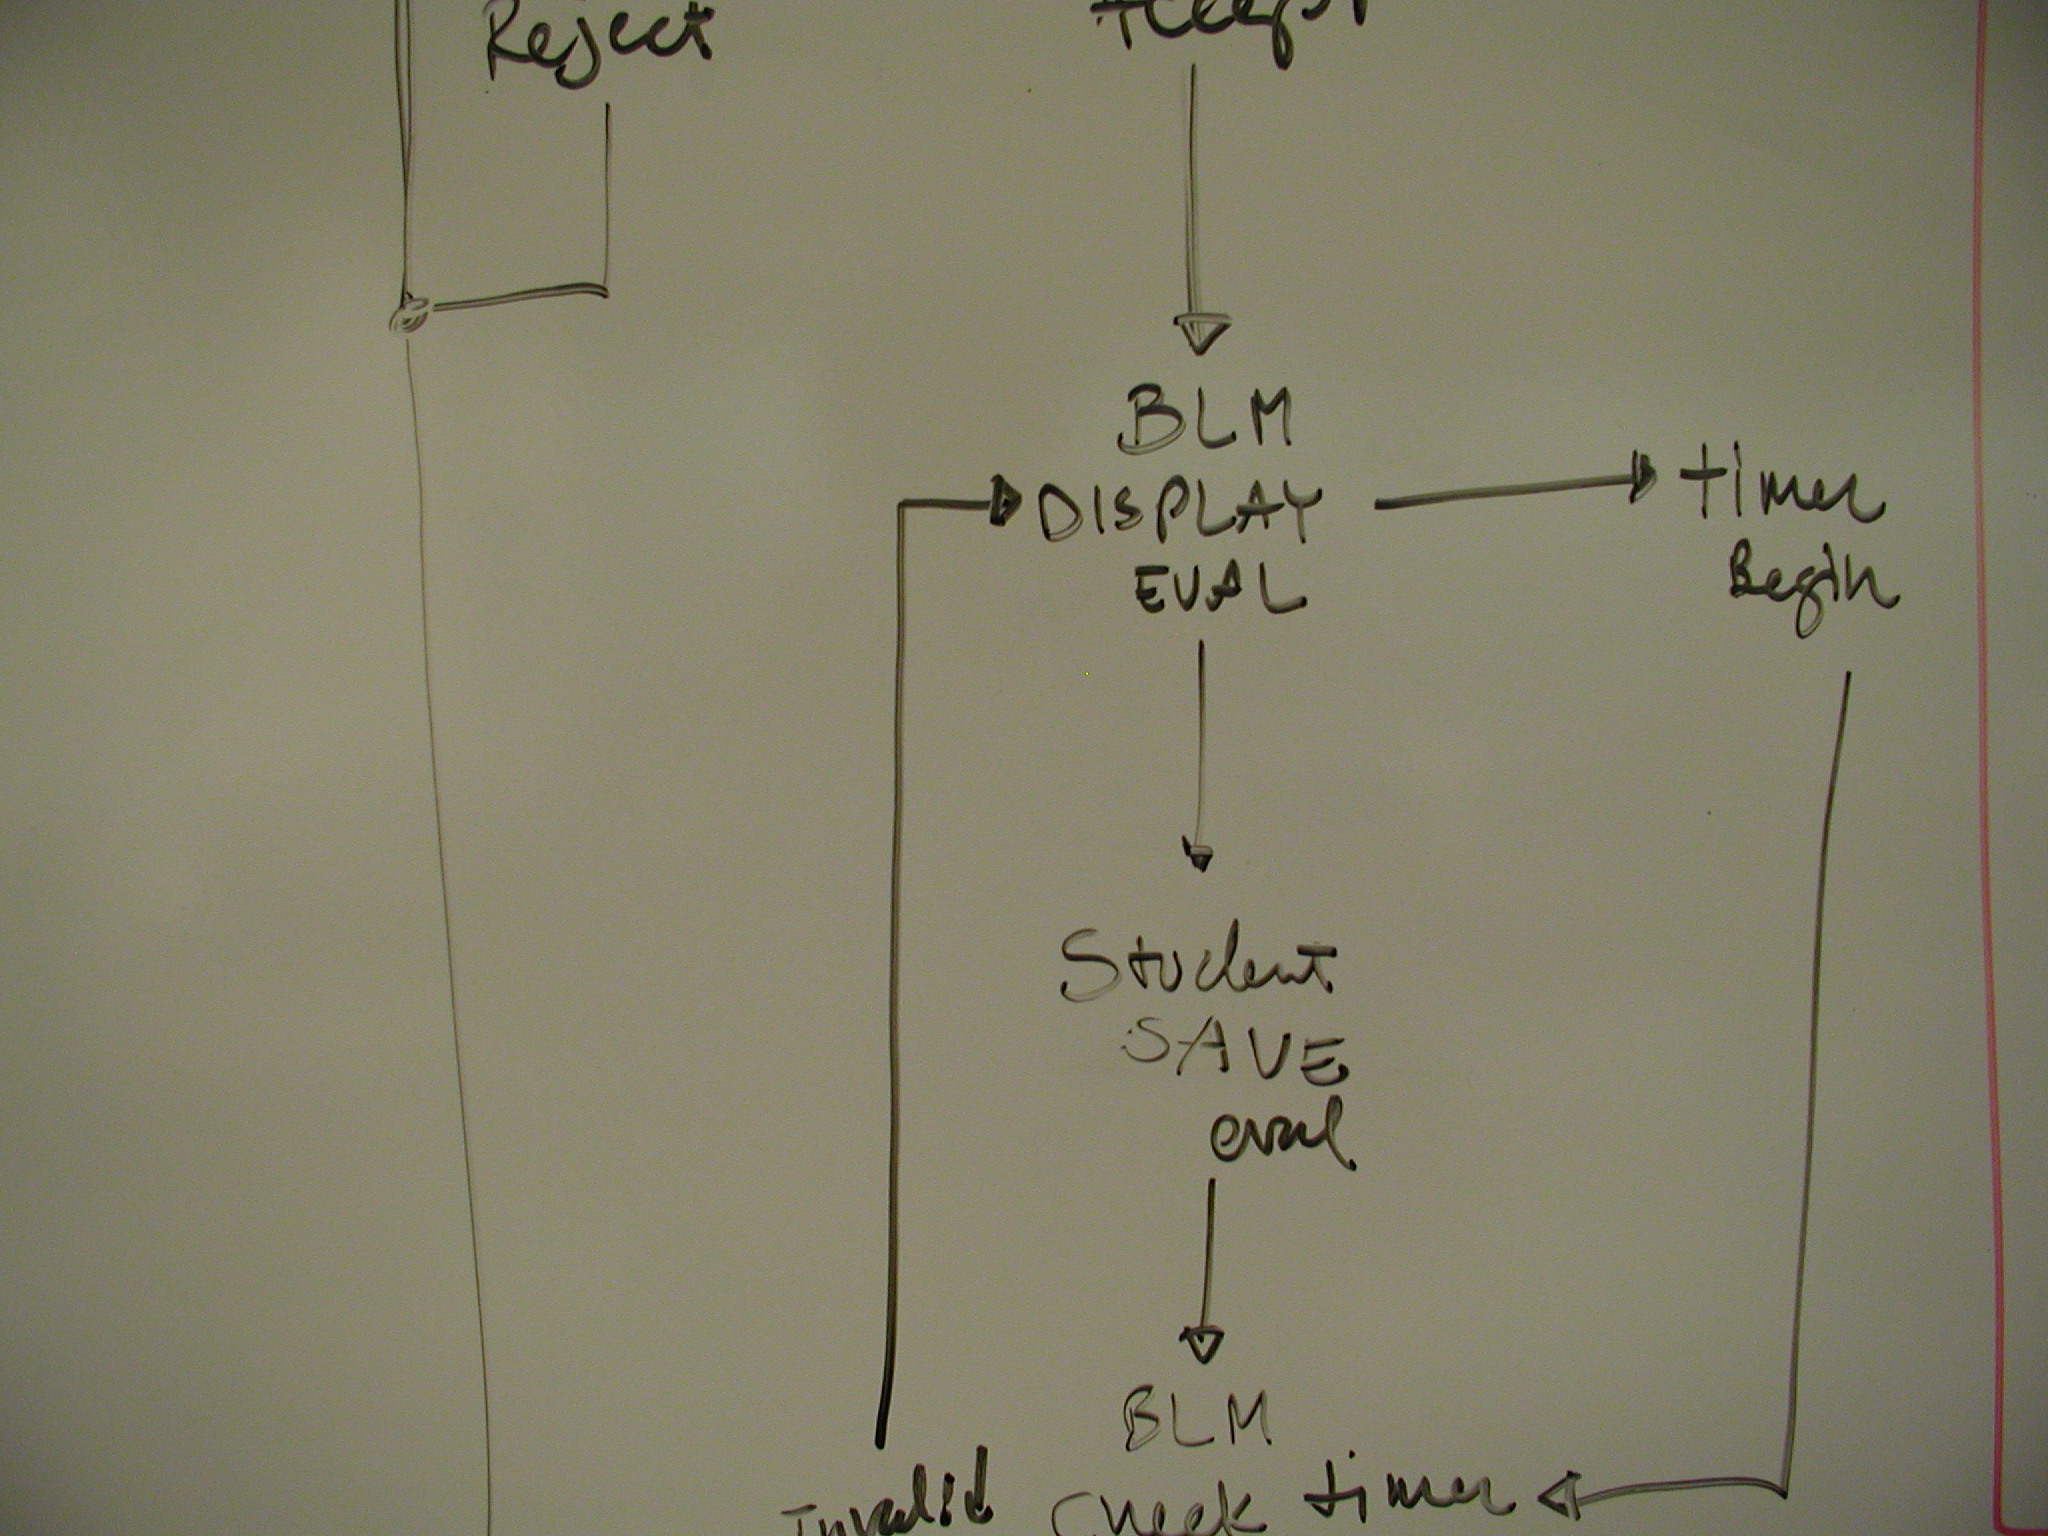 Reject
Accept
BLM
DISPLAY
EVAL
timer
Begin
Student
SAVE
eval
BLM
Invalid
Check timer